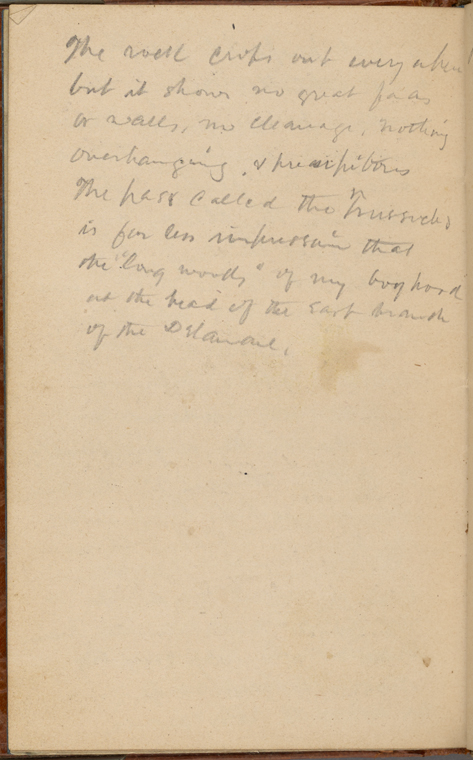 The rock crops out everywhere
but it shows no great faces
or walls, no cleavage, nothing
overhanging & precipitous
The pass called the Trussachs
is far less impressive that
the "long woods" of my boyhood
at the head of the East branch
of the Delaware.